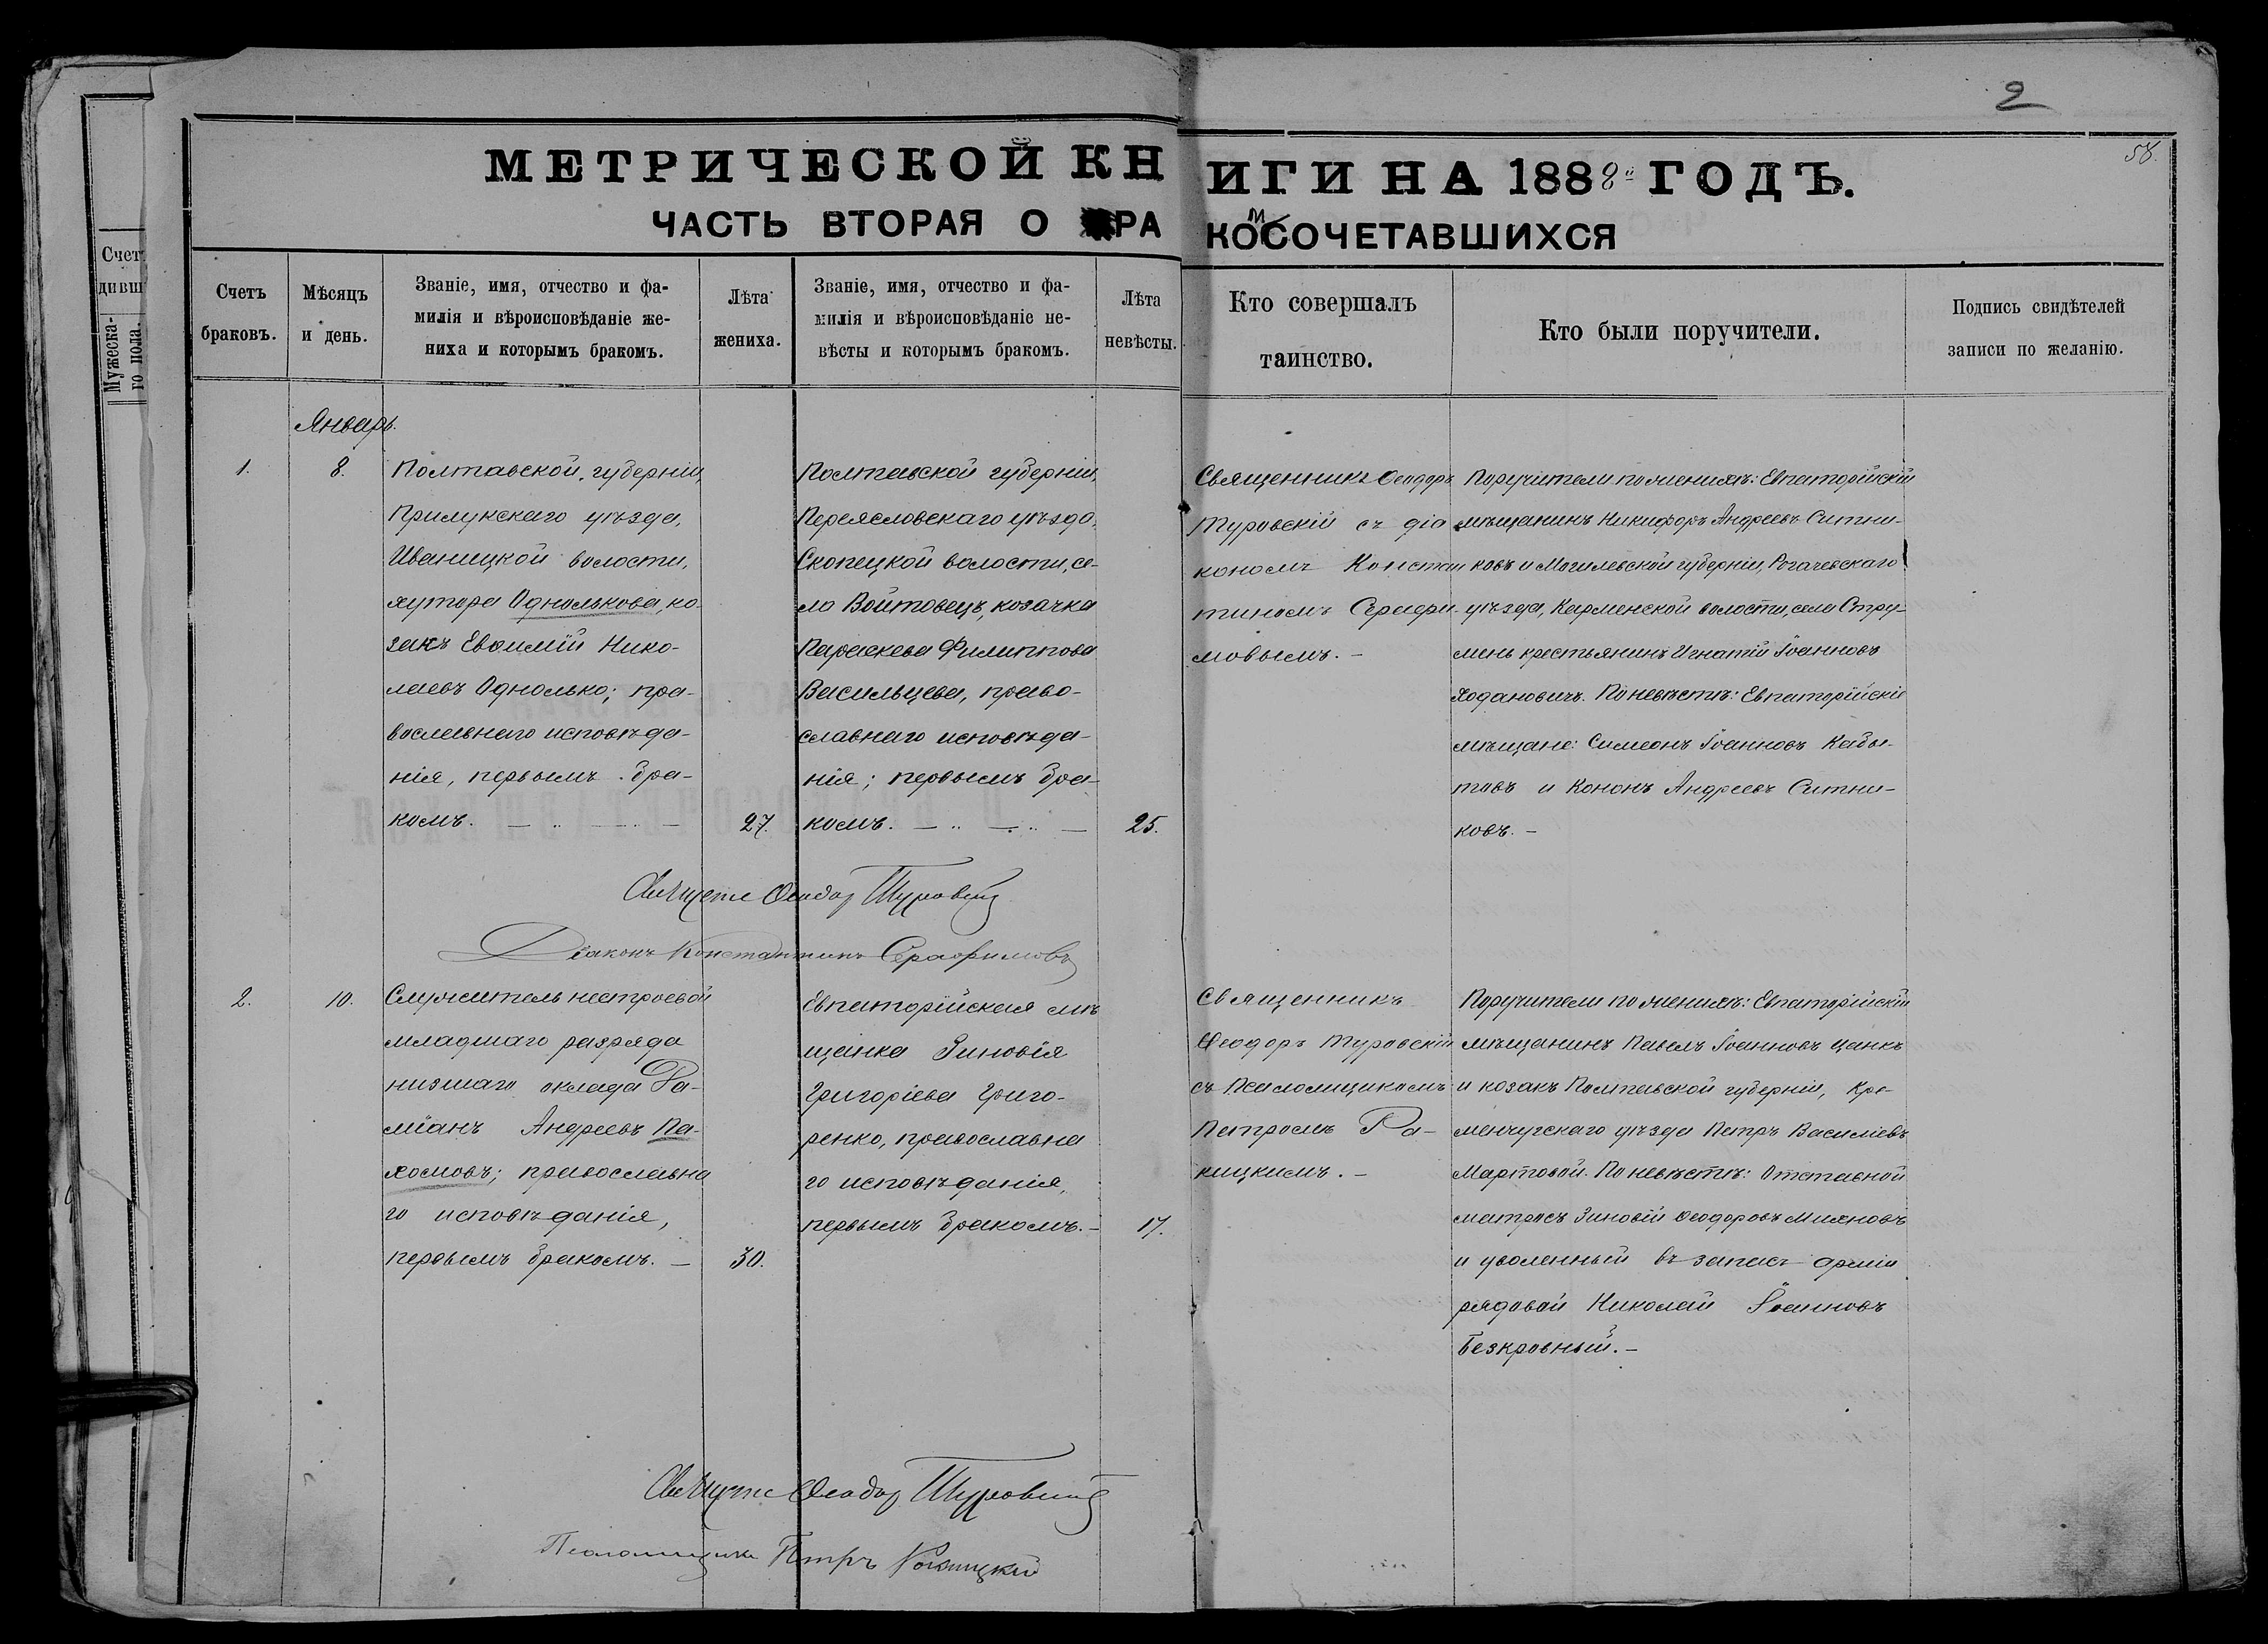 2
58.
МЕТРИЧЕСКОЙ КНИГИ НА 1888й ГОДЪ.
ЧАСТЬ ВТОРАЯ О БРАКОМСОЧЕТАВШИХСЯ
Счет
дивш
Мужеска-
го пола.
Счетъ
браковъ.
Мѣсяцъ
и день.
Званіе, имя, отчество и фа-
милія и вѣроисповѣданіе же-
ниха и которымъ бракомъ.
Лѣта
жениха.
Званіе, имя, отчество и фа-
милія и вѣроисповѣданіе не-
вѣсты и которымъ бракомъ.
Лѣта
невѣсты.
Кто совершалъ
таинство.
Кто были поручители.
Подпись свидѣтелей
записи по желанію.
Январь.
1.
8.
Полтавской губерніи,
Прилукскаго уѣзда,
Иваницкой волости,
хутора Однолькова, ко-
закъ Евѳимій Нико-
лаевъ Однолько; пра-
вославнаго исповѣда-
нія, первымъ бра-
комъ. —
27.
Полтавской губерніи,
Переясловскаго уѣзда,
Скопецкой волости, се-
ла Войтовецъ, козачка
Параскева Филиппова
Васильцева, право-
славнаго исповѣда-
нія; первымъ бра-
комъ. —
25.
Священникъ Ѳеодоръ
Туровскій съ діа
кономъ Констан
тиномъ Серафи-
мовымъ. —
Поручители по женихѣ: Евпаторійскій
мѣщанинъ Никифоръ Андреевъ Ситни-
ковъ и Могилевской губерніи, Рогачевскаго
уѣзда, Карменской волости, села Стру-
мень крестьянинъ Игнатій Іоанновъ
Ходановичъ. По невѣстѣ: Евпаторійскіе
мѣщане: Симеонъ Іоанновъ Кабы-
товъ и Кононъ Андреевъ Ситни-
ковъ. —
Ѳеодоръ Туровскій
Діаконъ Константинъ Серафимовъ
2.
10.
Служитель нестроевой
младшаго разряда
низшаго оклада Да-
міанъ Андреевъ Па-
хомовъ; православна
го исповѣданія,
первымъ бракомъ. —
30.
Евпаторійская мѣ
щанка Зиновія
Григоріева Григо-
ренко, православна
го исповѣданія,
первымъ бракомъ. —
17.
Священникъ
Ѳеодоръ Туровскій
съ Псаломщикомъ
Петромъ Ра-
кицкимъ. —
Поручители по женихѣ: Евпаторійскій
мѣщанинъ Павелъ Іоанновъ Цанкъ
и козакъ Полтавской губерніи, Кре-
менчугскаго уѣзда Петръ Василіевъ
Мартовой. По невѣстѣ: Отставной
матросъ Зиновій Ѳеодоровъ Михновъ
и уволенный въ запасъ арміи
рядовой Николай Іоанновъ
Безкровный. —
Ѳеодоръ Туровскій
Псаломщикъ Петръ Ракицкій